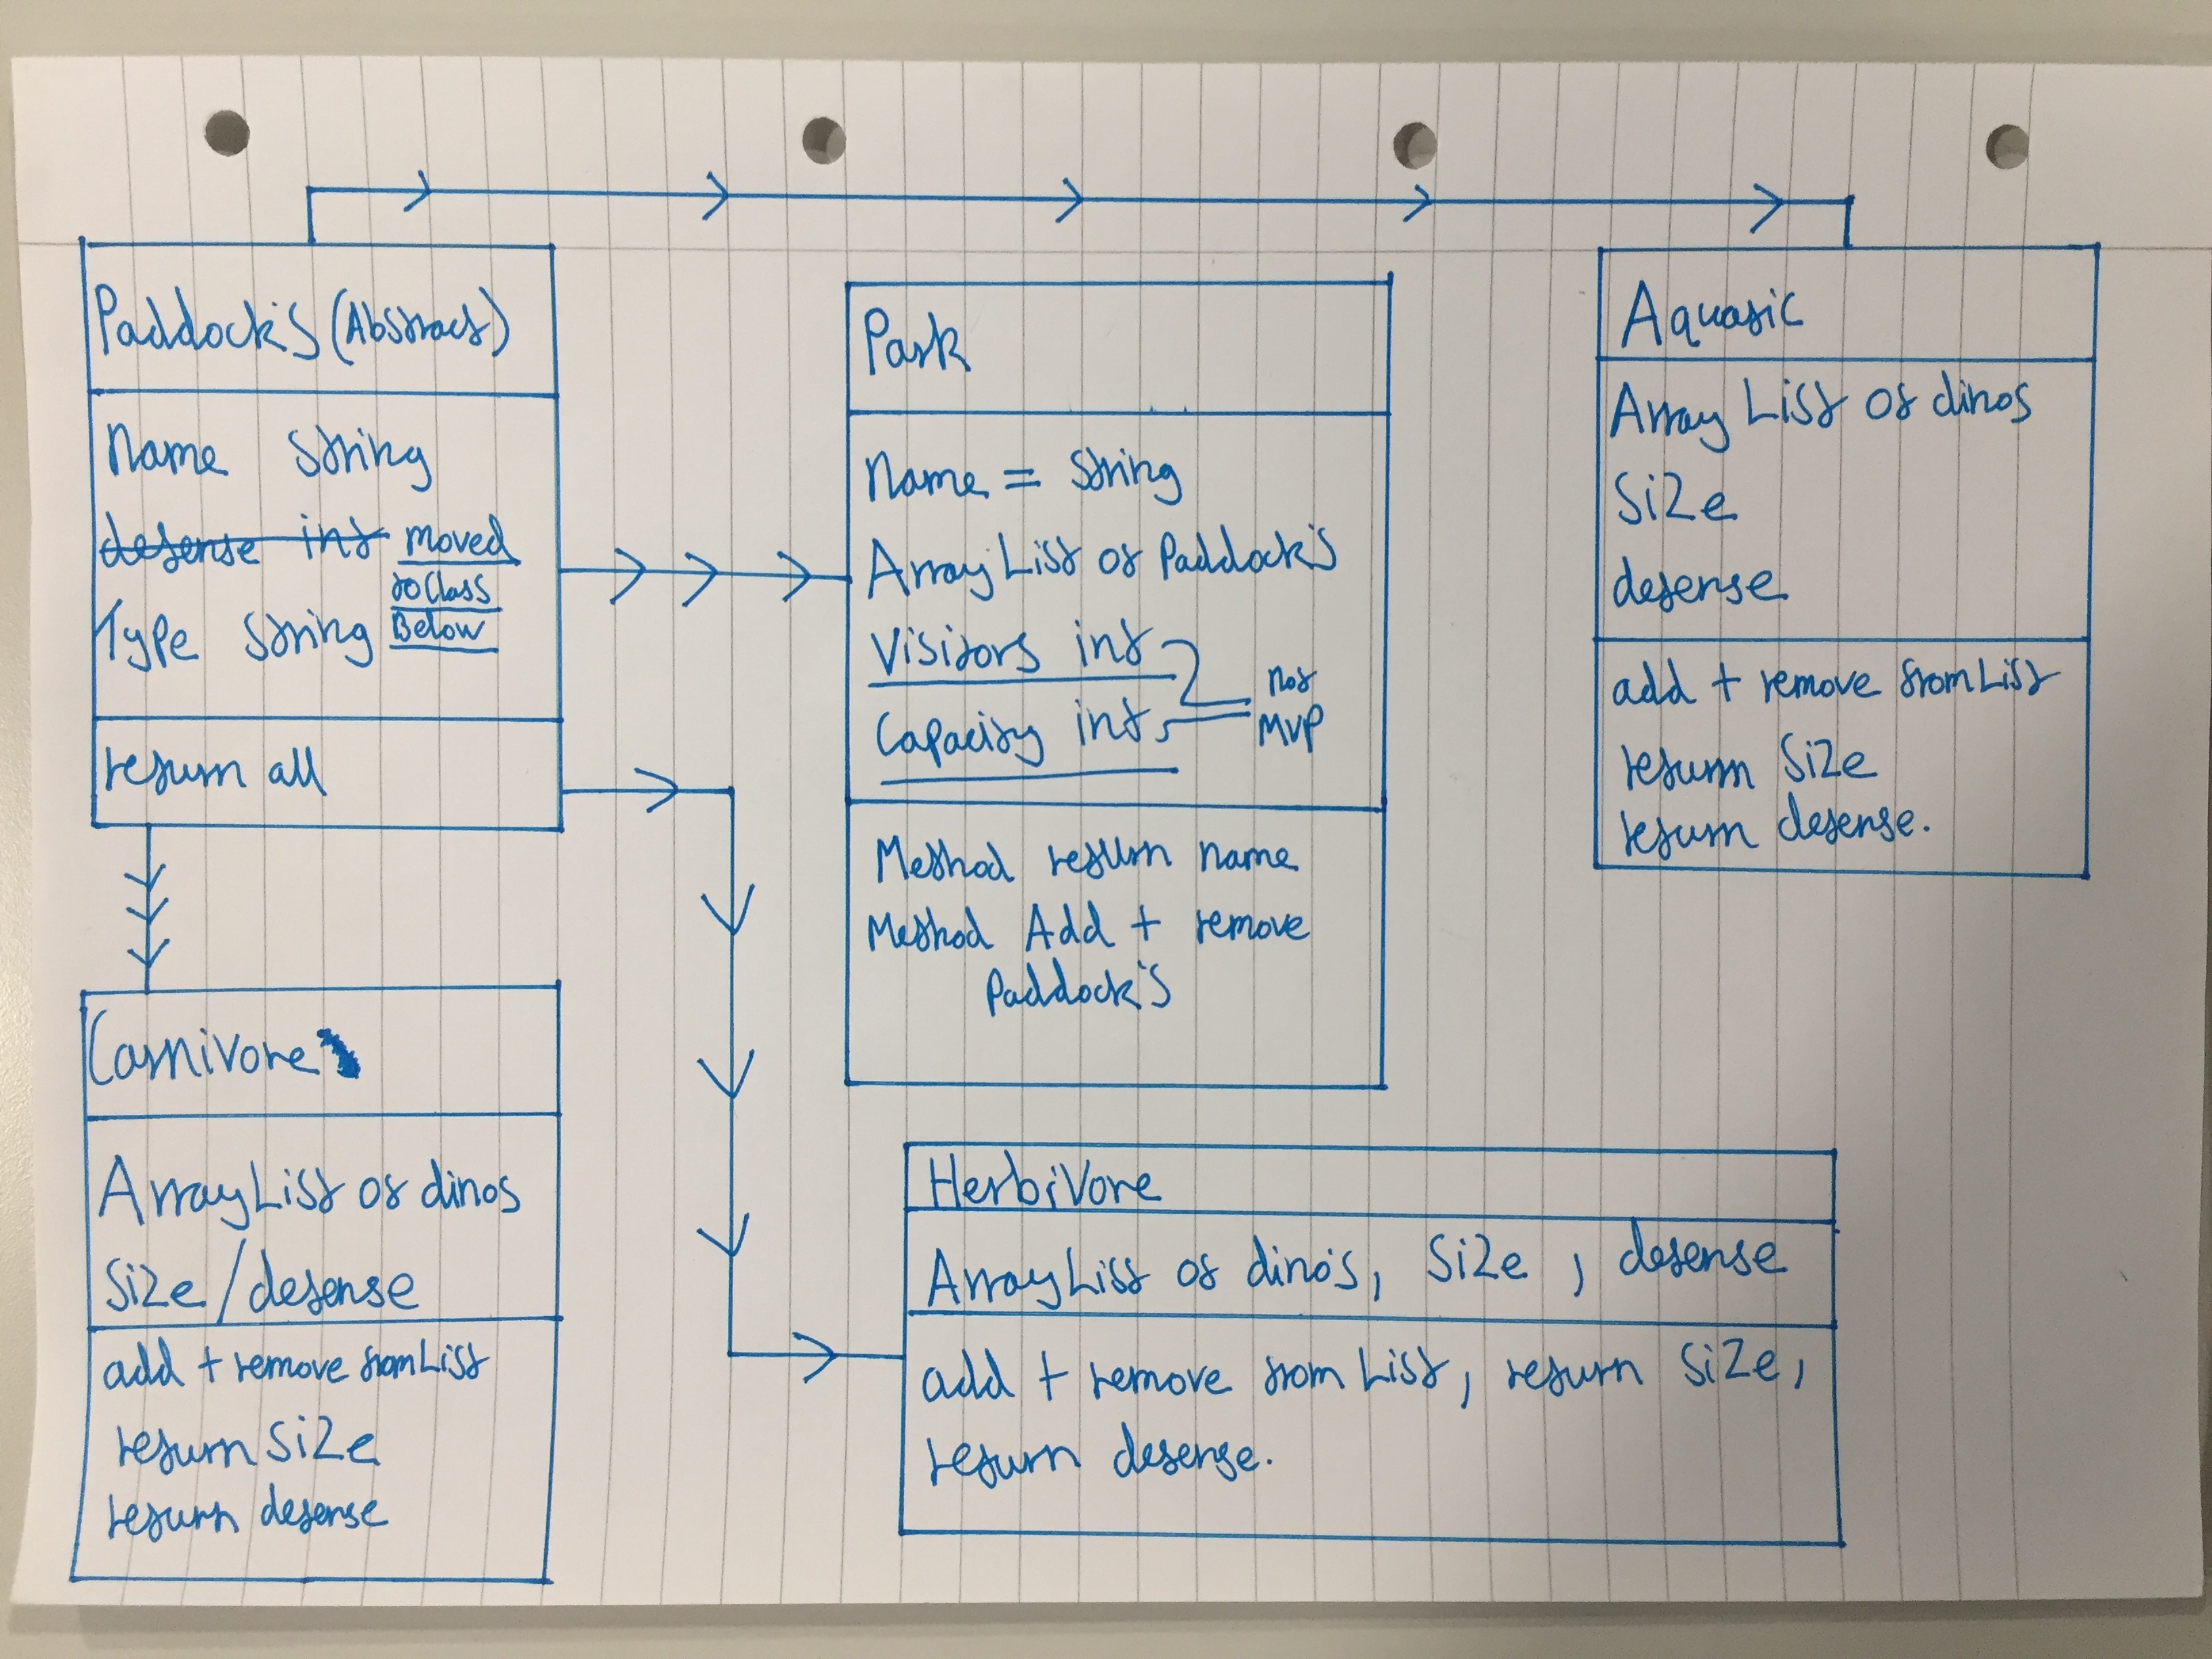 Paddock's (Abstract)
Name string
defense int moved
to Class
Below
Type string
return all
Park
Name = string
Array List of Paddock's
Visitors int
Capacity int
not
MVP
Method return name
Method Add + remove
Paddock's
Aquatic
Array List of dinos
Size
defense
add + remove from List
return Size
return defense.
Carnivore
Array List of dinos
Size/defense
add + remove from List
return Size
return defense
Herbivore
Array List of dino's, Size, defense
add + remove from List, return Size,
return defense.